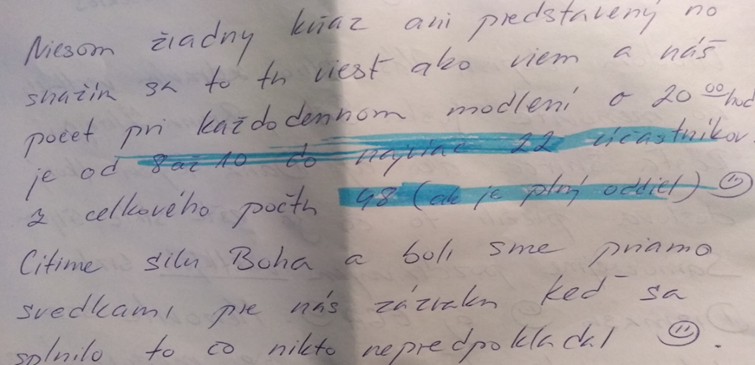 Niesom žiadny kňaz ani predstavený no
snažím sa to tu viesť ako viem a náš
počet pri každodennom modlení o 20 00 hod
je od 8 až 10 do najviac 22 účastníkov
z celkového počtu 48 (ak je plný oddiel) ☺
Cítime silu Boha a boli sme priamo
svedkami, pre nás zázraku keď sa
splnilo to čo nikto nepredpokladal ☺.